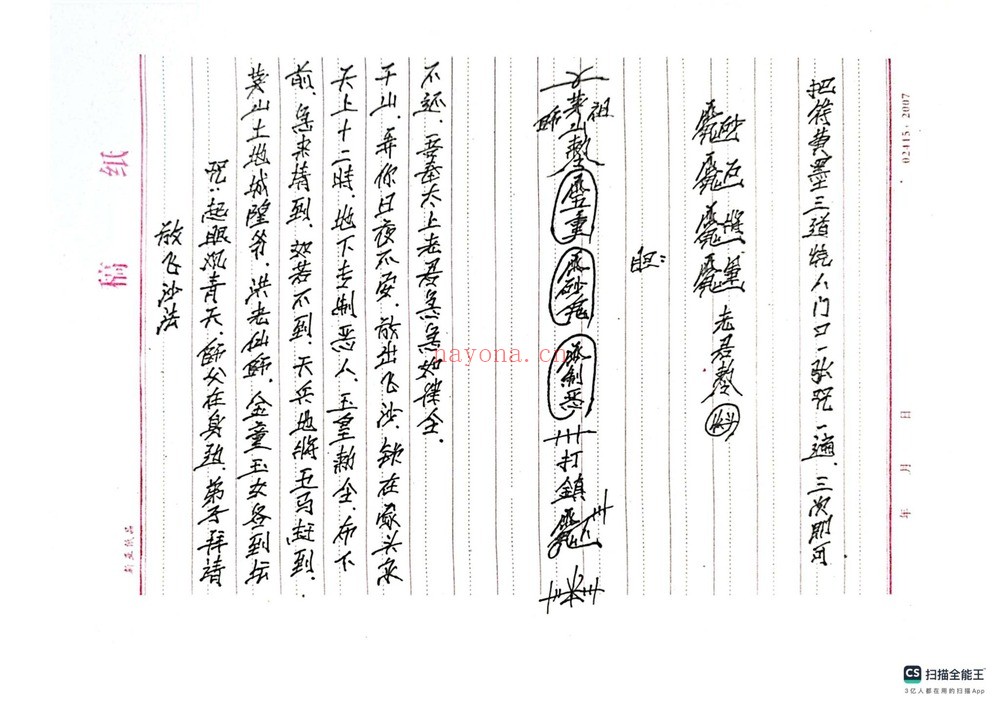 放飞沙法
咒:起眼观青天,师父在身边,弟子拜請
茅山土地城隍爷,洪老仙师,金童玉女各到坛
前,急来請到,如若不到,天兵地将五马赶到.
天上十二時,地下专制恶人,玉皇勅令,布下
千山,弄你日夜不安,放出飞沙,在家头永
不返,吾奉太上老君急急如律令.
祖师茅山敕
打鎮
老君敕
把符黄墨三道烧人门口一张咒一遍,三次則可
稿纸
02415·2007
年 月 日
nayona.cn
CS 扫描全能王
3亿人都在用的扫描App